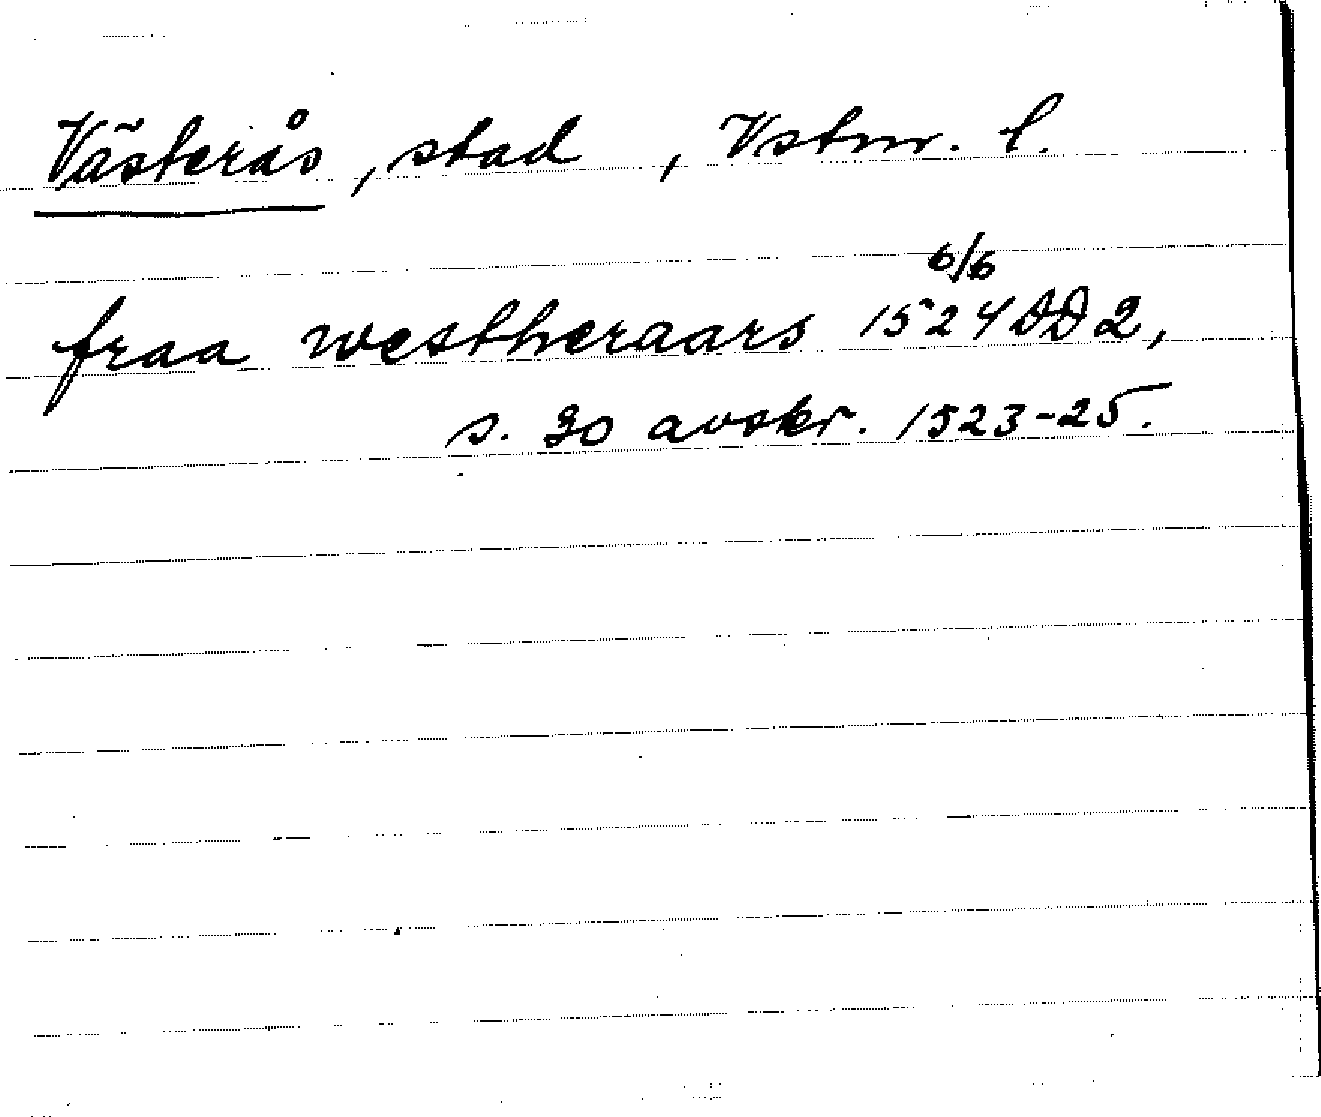 Västerås, stad, Vstm. l.
6/6
fraa westheraars 1524 DD2,
s. 30 avskr. 1523-25.